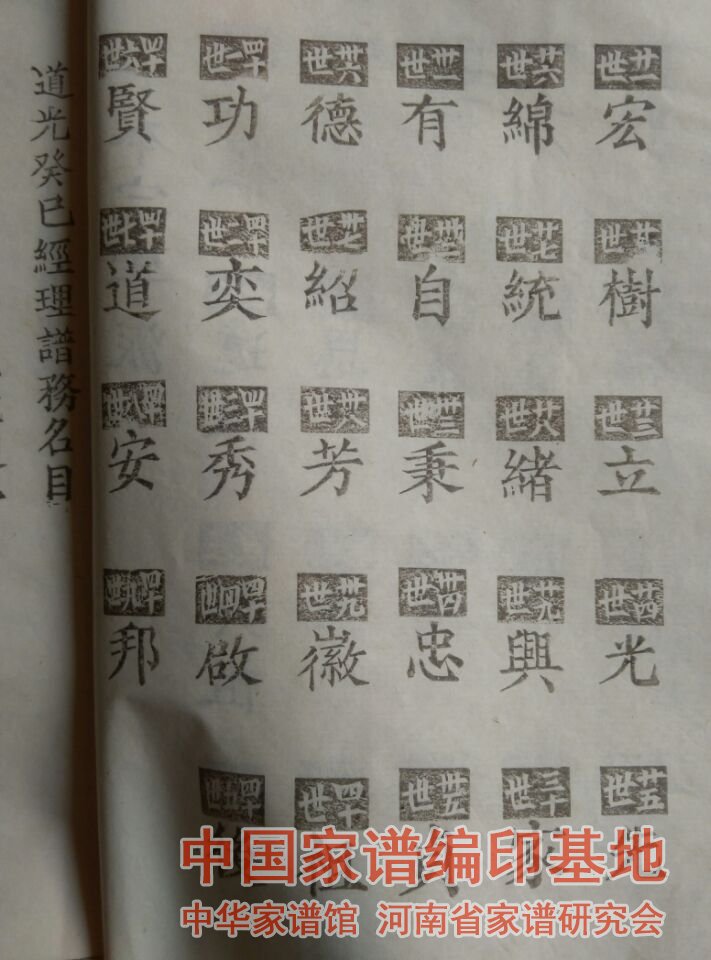 廿一世 宏 廿二世 樹 廿三世 立 廿四世 光 廿五世
廿六世 綿 廿七世 統 廿八世 緒 廿九世 興 三十世
卅一世 有 卅二世 自 卅三世 秉 卅四世 忠 卅五世
卅六世 德 卅七世 紹 卅八世 芳 卅九世 徽 四十世
四十一世 功 四十二世 奕 四十三世 秀 四十四世 啟 四十五世
四十六世 賢 四十七世 道 四十八世 安 四十九世 邦
道光癸巳經理譜務名目
中国家谱编印基地
中华家谱馆 河南省家谱研究会